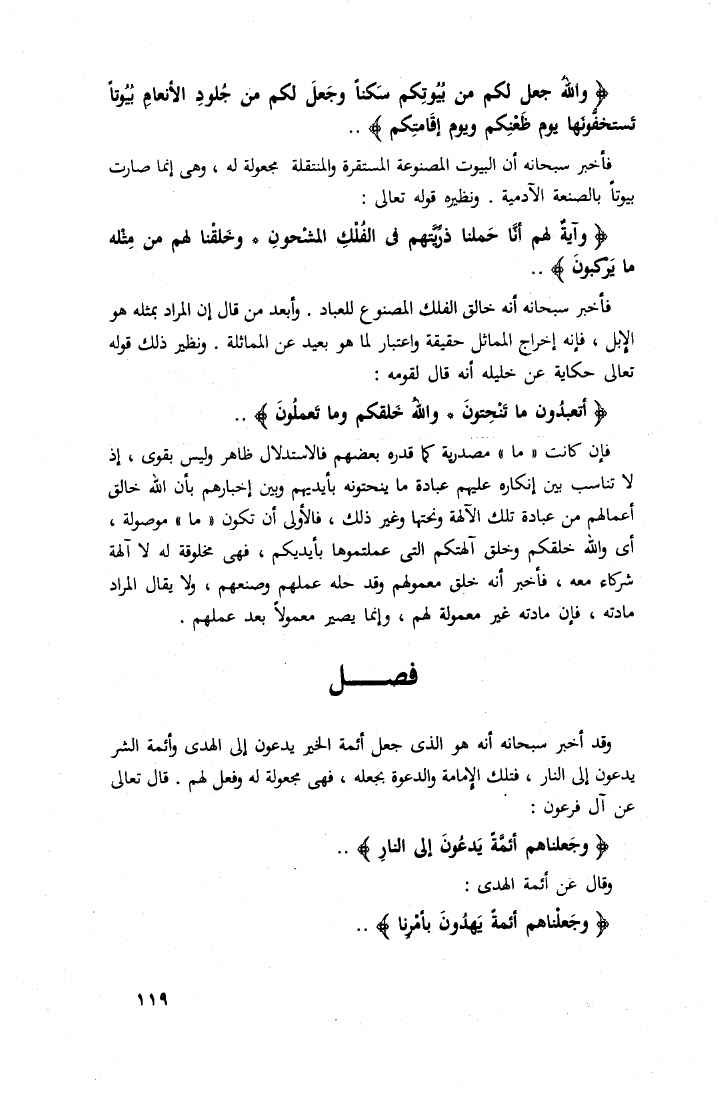 ﴿ واللهُ جعل لكم من بُيُوتِكم سَكناً وجَعلَ لكم من جُلودِ الأنعامِ بُيُوتاً
تَستخفُّونَها يوم ظَعْنِكم ويوم إقَامتِكم ﴾ ..
فأخبر سبحانه أن البيوت المصنوعة المستقرة والمنتقلة مجعولة له ، وهى إنما صارت
بيوتاً بالصنعة الآدمية . ونظيره قوله تعالى :
﴿ وآيةٌ لهم أنَّا حَملنا ذرِّيَّتهم فى الفُلْكِ المشْحونِ * وخَلقْنا لهم من مِثْله
ما يَرْكبونَ ﴾ ..
فأخبر سبحانه أنه خالق الفلك المصنوع للعباد . وأبعد من قال إن المراد بمثله هو
الإبل ، فإنه إخراج المماثل حقيقة واعتبار لما هو بعيد عن المماثلة . ونظير ذلك قوله
تعالى حكاية عن خليله أنه قال لقومه :
﴿ أتعبدُون ما تَنْحِتونَ * واللهُ خَلقكم وما تَعملُونَ ﴾ ..
فإن كانت « ما » مصدرية كما قدره بعضهم فالاستدلال ظاهر وليس بقوى ، إذ
لا تناسب بين إنكاره عليهم عبادة ما ينحتونه بأيديهم وبين إخبارهم بأن الله خالق
أعمالهم من عبادة تلك الآلهة ونحتها وغير ذلك ، فالأولى أن تكون « ما » موصولة ،
أى والله خلقكم وخلق آلهتكم التى عملتموها بأيديكم ، فهى مخلوقة له لا آلهة
شركاء معه ، فأخبر أنه خلق معمولهم وقد حله عملهم وصنعهم ، ولا يقال المراد
مادته ، فإن مادته غير معمولة لهم ، وإنما يصير معمولاً بعد عملهم .
فصـــــل
وقد أخبر سبحانه أنه هو الذى جعل أئمة الخير يدعون إلى الهدى وأئمة الشر
يدعون إلى النار ، فتلك الإمامة والدعوة بجعله ، فهى مجعولة له وفعل لهم . قال تعالى
عن آل فرعون :
﴿ وجَعلناهم أئمَّةً يَدعُونَ إلى النارِ ﴾ ..
وقال عن أئمة الهدى :
﴿ وجَعلْناهم أئمةً يَهدُونَ بأمْرِنا ﴾ ..
١١٩